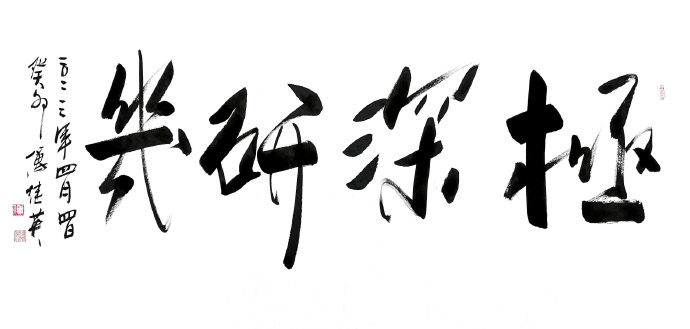 極深研幾
二〇二三年四月四日
癸卯 傅佳英